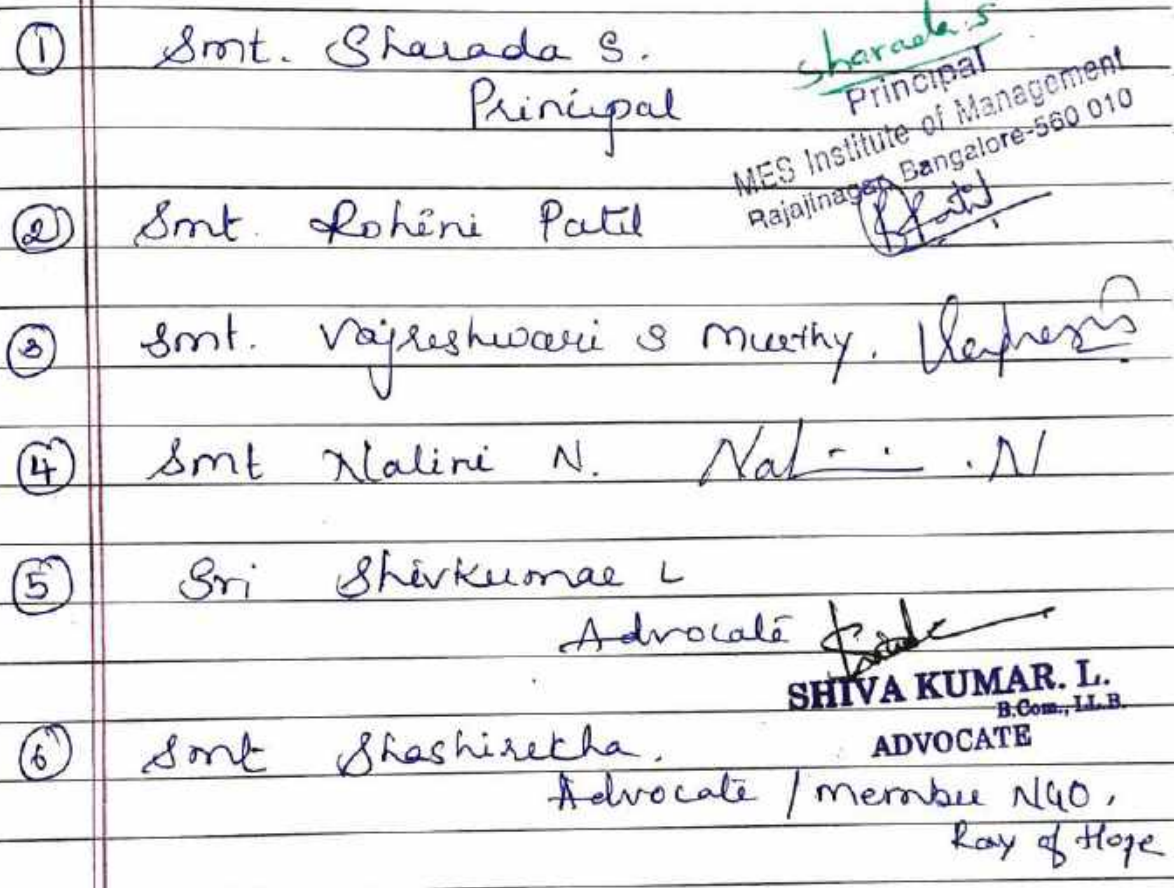 ① Smt. Sharada S. Sharada.S
Principal
Principal
MES Institute of Management
Rajajinagar, Bangalore-560 010
② Smt. Rohini Patil RPatil
③ Smt. Vajreshwari S Murthy.
④ Smt Nalini N. Nalini .N
⑤ Sri Shivkumar L
Advocate
SHIVA KUMAR. L.
B.Com., LL.B.
ADVOCATE
⑥ Smt Shashirekha.
Advocate / member NGO,
Ray of Hope